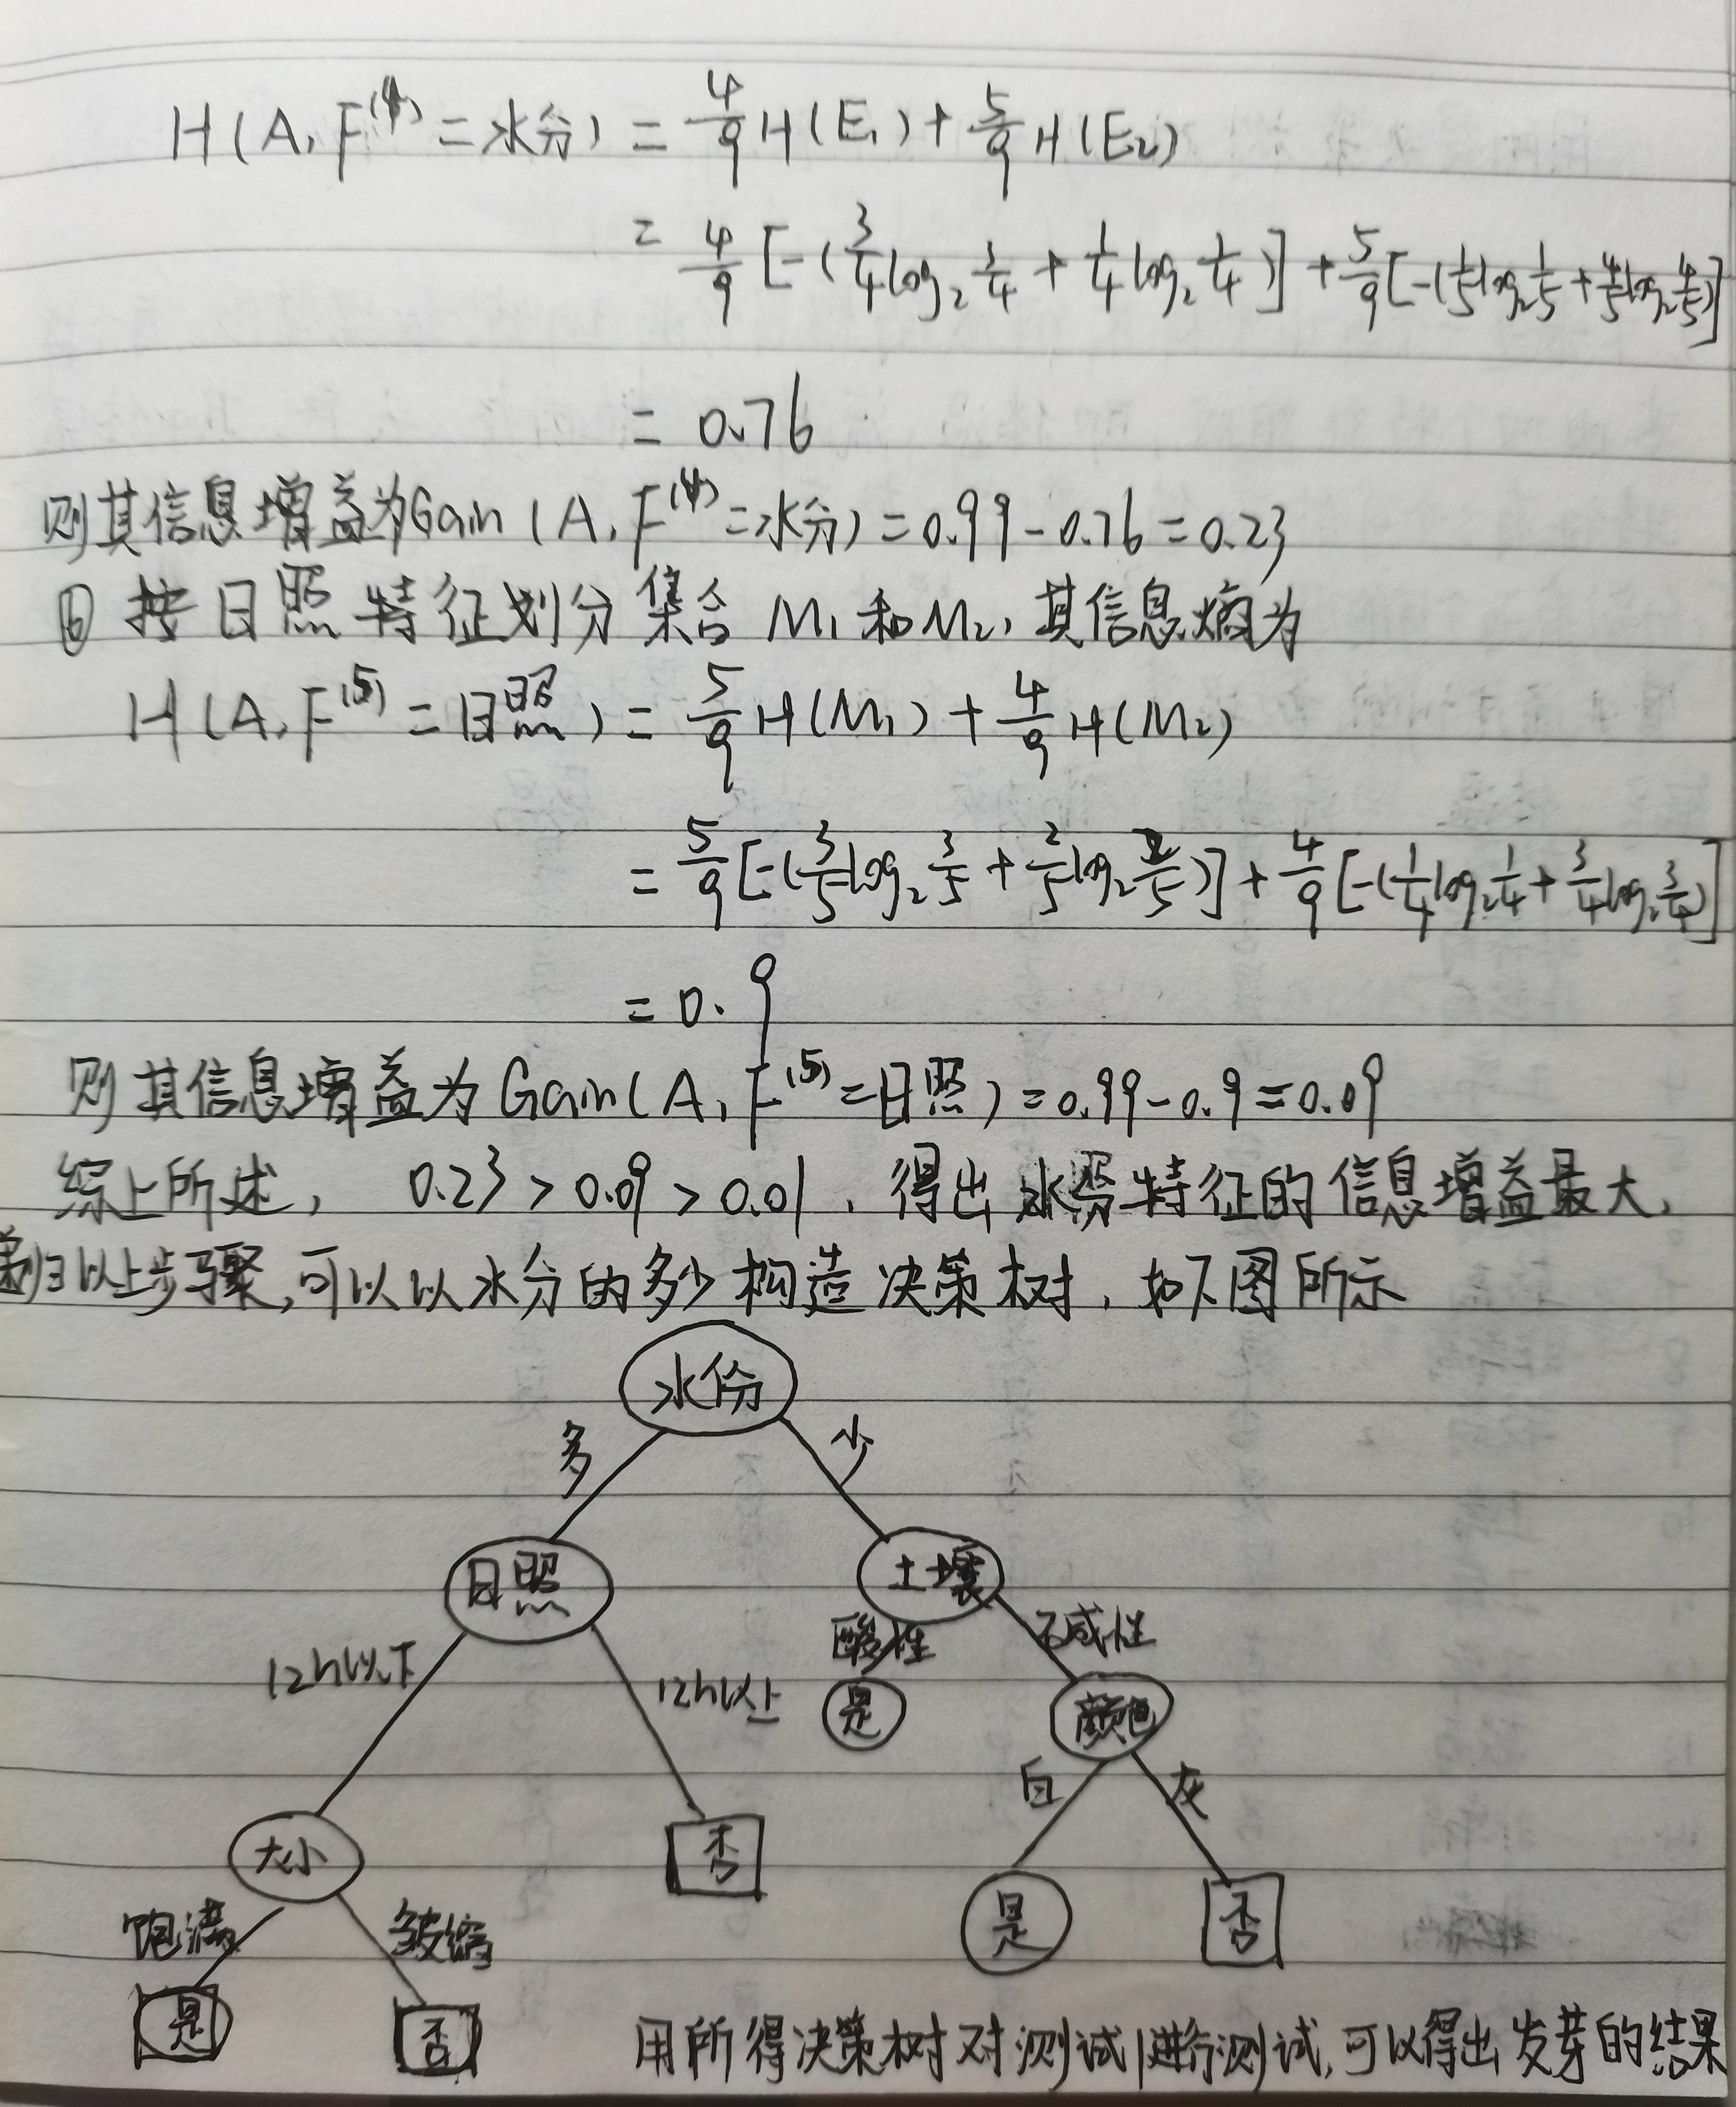 H(A, F⁽⁴⁾=水分) = 4/9 H(E₁) + 5/9 H(E₂)
= 4/9 [-(3/4 log₂ 3/4 + 1/4 log₂ 1/4)] + 5/9 [-(1/5 log₂ 1/5 + 4/5 log₂ 4/5)]
= 0.76
则其信息增益为Gain(A, F⁽⁴⁾=水分) = 0.99-0.76 = 0.23
⑥ 按日照特征划分集合 M₁和M₂, 其信息熵为
H(A, F⁽⁵⁾=日照) = 5/9 H(M₁) + 4/9 H(M₂)
= 5/9 [-(3/5 log₂ 3/5 + 2/5 log₂ 2/5)] + 4/9 [-(1/4 log₂ 1/4 + 3/4 log₂ 3/4)]
= 0.9
则其信息增益为Gain(A, F⁽⁵⁾=日照) = 0.99-0.9 = 0.09
综上所述, 0.23 > 0.09 > 0.01, 得出水分特征的信息增益最大,
递归以上步骤,可以以水分的多少构造决策树, 如下图所示
水份
多 少
日照 土壤
12h以下 12h以上 酸性 碱性
是 颜色
白 灰
大小 否
饱满 皱缩 是 否
是 否
用所得决策树对测试1进行测试,可以得出发芽的结果